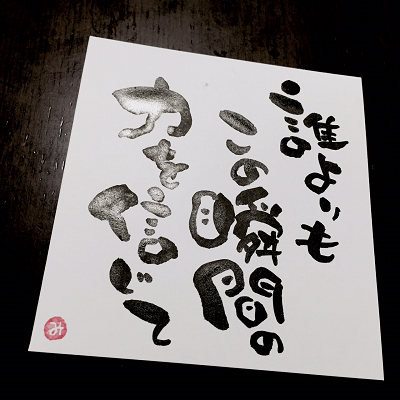 誰よりも
この瞬間の
力を信じて
み